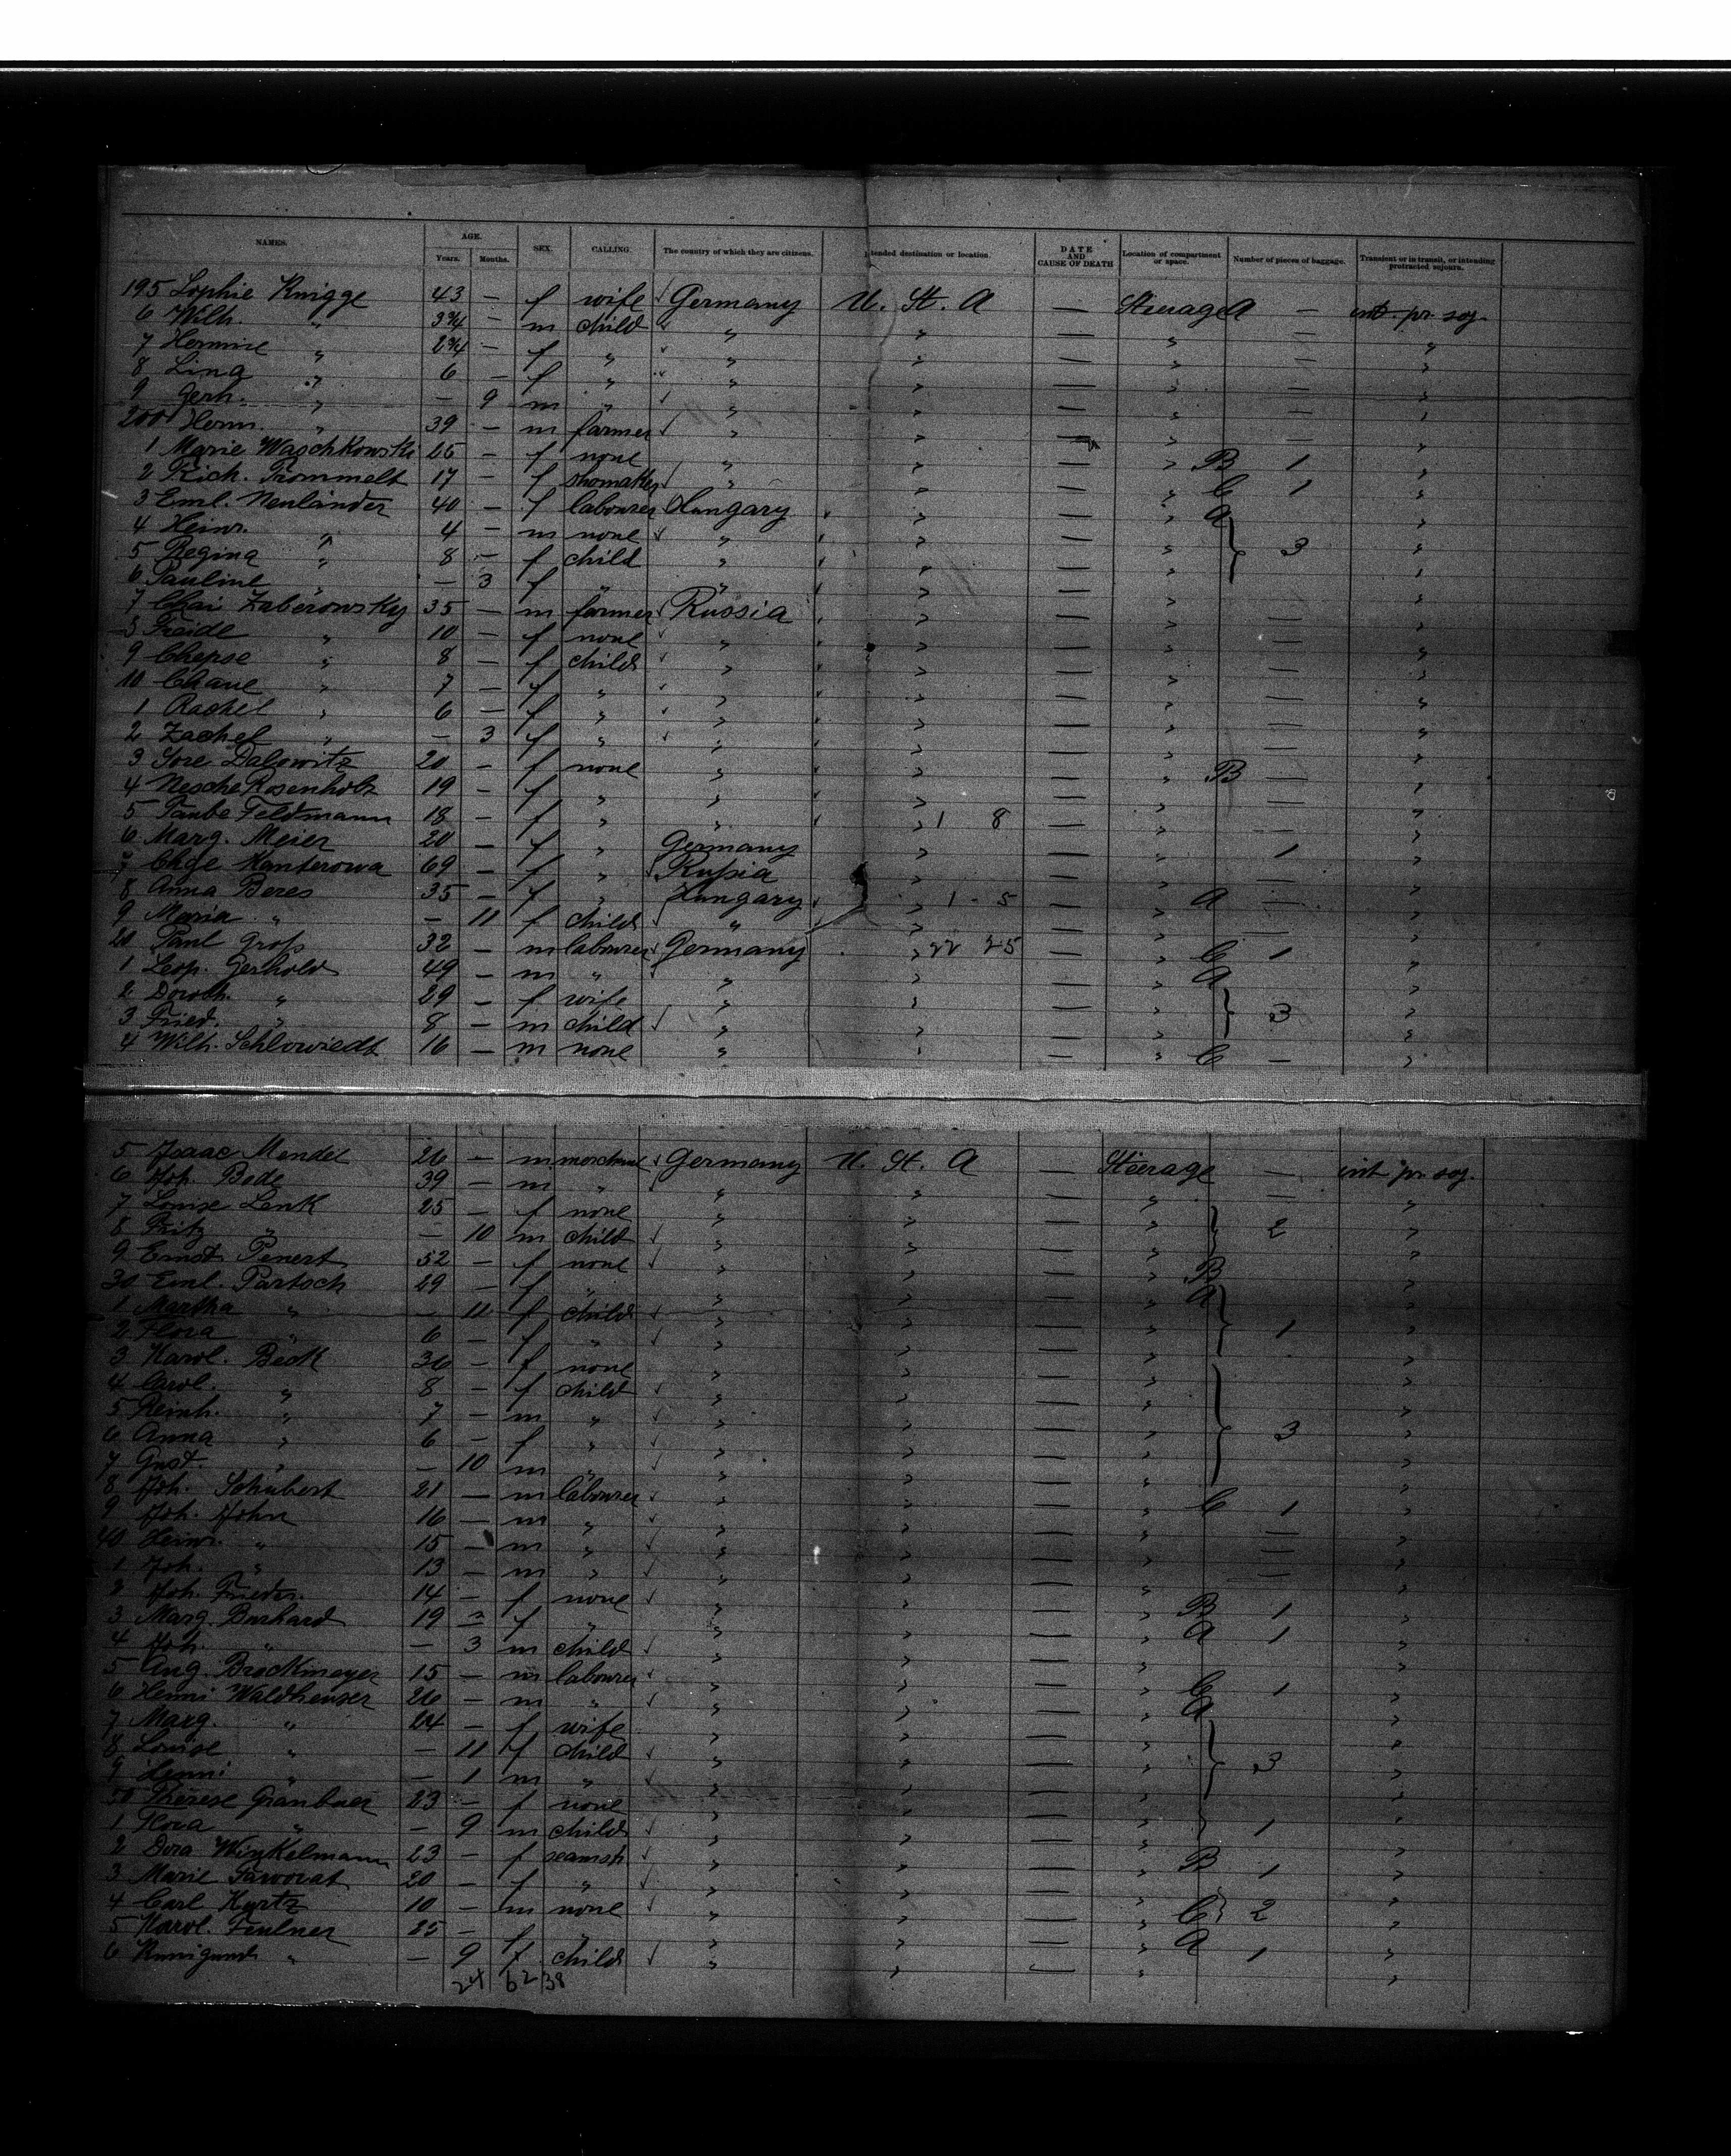 NAMES. AGE. Years. Months. SEX. CALLING. The country of which they are citizens. Intended destination or location. DATE AND CAUSE OF DEATH Location of compartment or space. Number of pieces of baggage. Transient or in transit, or intending protracted sojourn.
195 Sophie Knigge 43 — f wife Germany U. St. A — Steerage A — int. pr. soj.
6 Wilh. " 3¾ — m child " " — " — "
7 Hermine " 2¾ — f " " " — " — "
8 Lina " 6 — f " " " — " — "
9 Gerh. " — 9 m " " " — " — "
200 Herm. " 39 — m farmer " " — " — "
1 Marie Waschkowski 25 — f none " " — " B 1 "
2 Rich. Trommelt 17 — f shomaker " " — " C 1 "
3 Eml. Neuländer 40 — f labourer Hungary " — " A "
4 Heinr. " 4 — m none " " — " 3 "
5 Regina " 8 — f child " " — " "
6 Pauline " — 3 f " " " — " "
7 Chai Zaberowsky 35 — m farmer Russia " — " — "
8 Freide " 10 — f none " " — " — "
9 Chepse " 8 — f child " " — " — "
10 Chane " 7 — f " " " — " — "
1 Rachel " 6 — f " " " — " — "
2 Zachef " — 3 f " " " — " — "
3 Sore Dalowitz 20 — f none " " — " B — "
4 Nesche Rosenholz 19 — f " " " — " — "
5 Taube Feldmann 18 — f " " " 1 8 — " — "
6 Marg. Meier 20 — f " Germany " — " 1 "
7 Chaje Kanterowa 69 — f " Russia " — " — "
8 Anna Beres 35 — f " Hungary " 1 - 5 — " A — "
9 Maria " — 11 f child " " — " — "
20 Paul Groß 32 — m labourer Germany " 22 25 — " C 1 "
1 Leop. Gerhold 49 — m " " " — " A "
2 Doroth. " 29 — f wife " " — " 3 "
3 Fried. " 8 — m child " " — " "
4 Wilh. Schlowiedt 16 — m none " " — " C — "
5 Isaac Mendel 26 — m merchant Germany U. St. A — Steerage — int. pr. soj.
6 Joh. Bode 39 — m " " " — " — "
7 Louise Lenk 25 — f none " " — " 2 "
8 Fritz " — 10 m child " " — " "
9 Ernst Penert 52 — f none " " — " B "
30 Eml. Partsch 29 — f " " " — " A "
1 Martha " — 11 f child " " — " 1 "
2 Flora " 6 — f " " " — " "
3 Karol. Beck 36 — f none " " — " "
4 Carol. " 8 — f child " " — " "
5 Reinh. " 7 — m " " " — " 3 "
6 Anna " 6 — f " " " — " "
7 Gust. " — 10 m " " " — " "
8 Joh. Schubert 21 — m labourer " " — " C 1 "
9 Joh. John 16 — m " " " — " — "
40 Heinr. " 15 — m " " " — " — "
1 Joh. " 13 — m " " " — " — "
2 Joh. Frieder. 14 — f none " " — " B 1 "
3 Marg. Burhard 19 — f " " " — " A 1 "
4 Joh. " — 3 m child " " — " "
5 Aug. Brockmeyer 15 — m labourer " " — " C 1 "
6 Henni Waldheuser 26 — m " " " — " A "
7 Marg. " 24 — f wife " " — " "
8 Louise " — 11 f child " " — " 3 "
9 Henni " — 1 m " " " — " "
50 Therese Granbner 23 — f none " " — " "
1 Flora " — 9 m child " " — " 1 "
2 Dora Winkelmann 23 — f seamstr. " " — " B 1 "
3 Marie 20 — f " " " — " "
4 Carl Kurtz 10 — m none " " — " C 2 "
5 Karol. Feulner 25 — f " " " — " A "
6 Kunigund. " — 9 f child " " — " 1 "
24 62 38